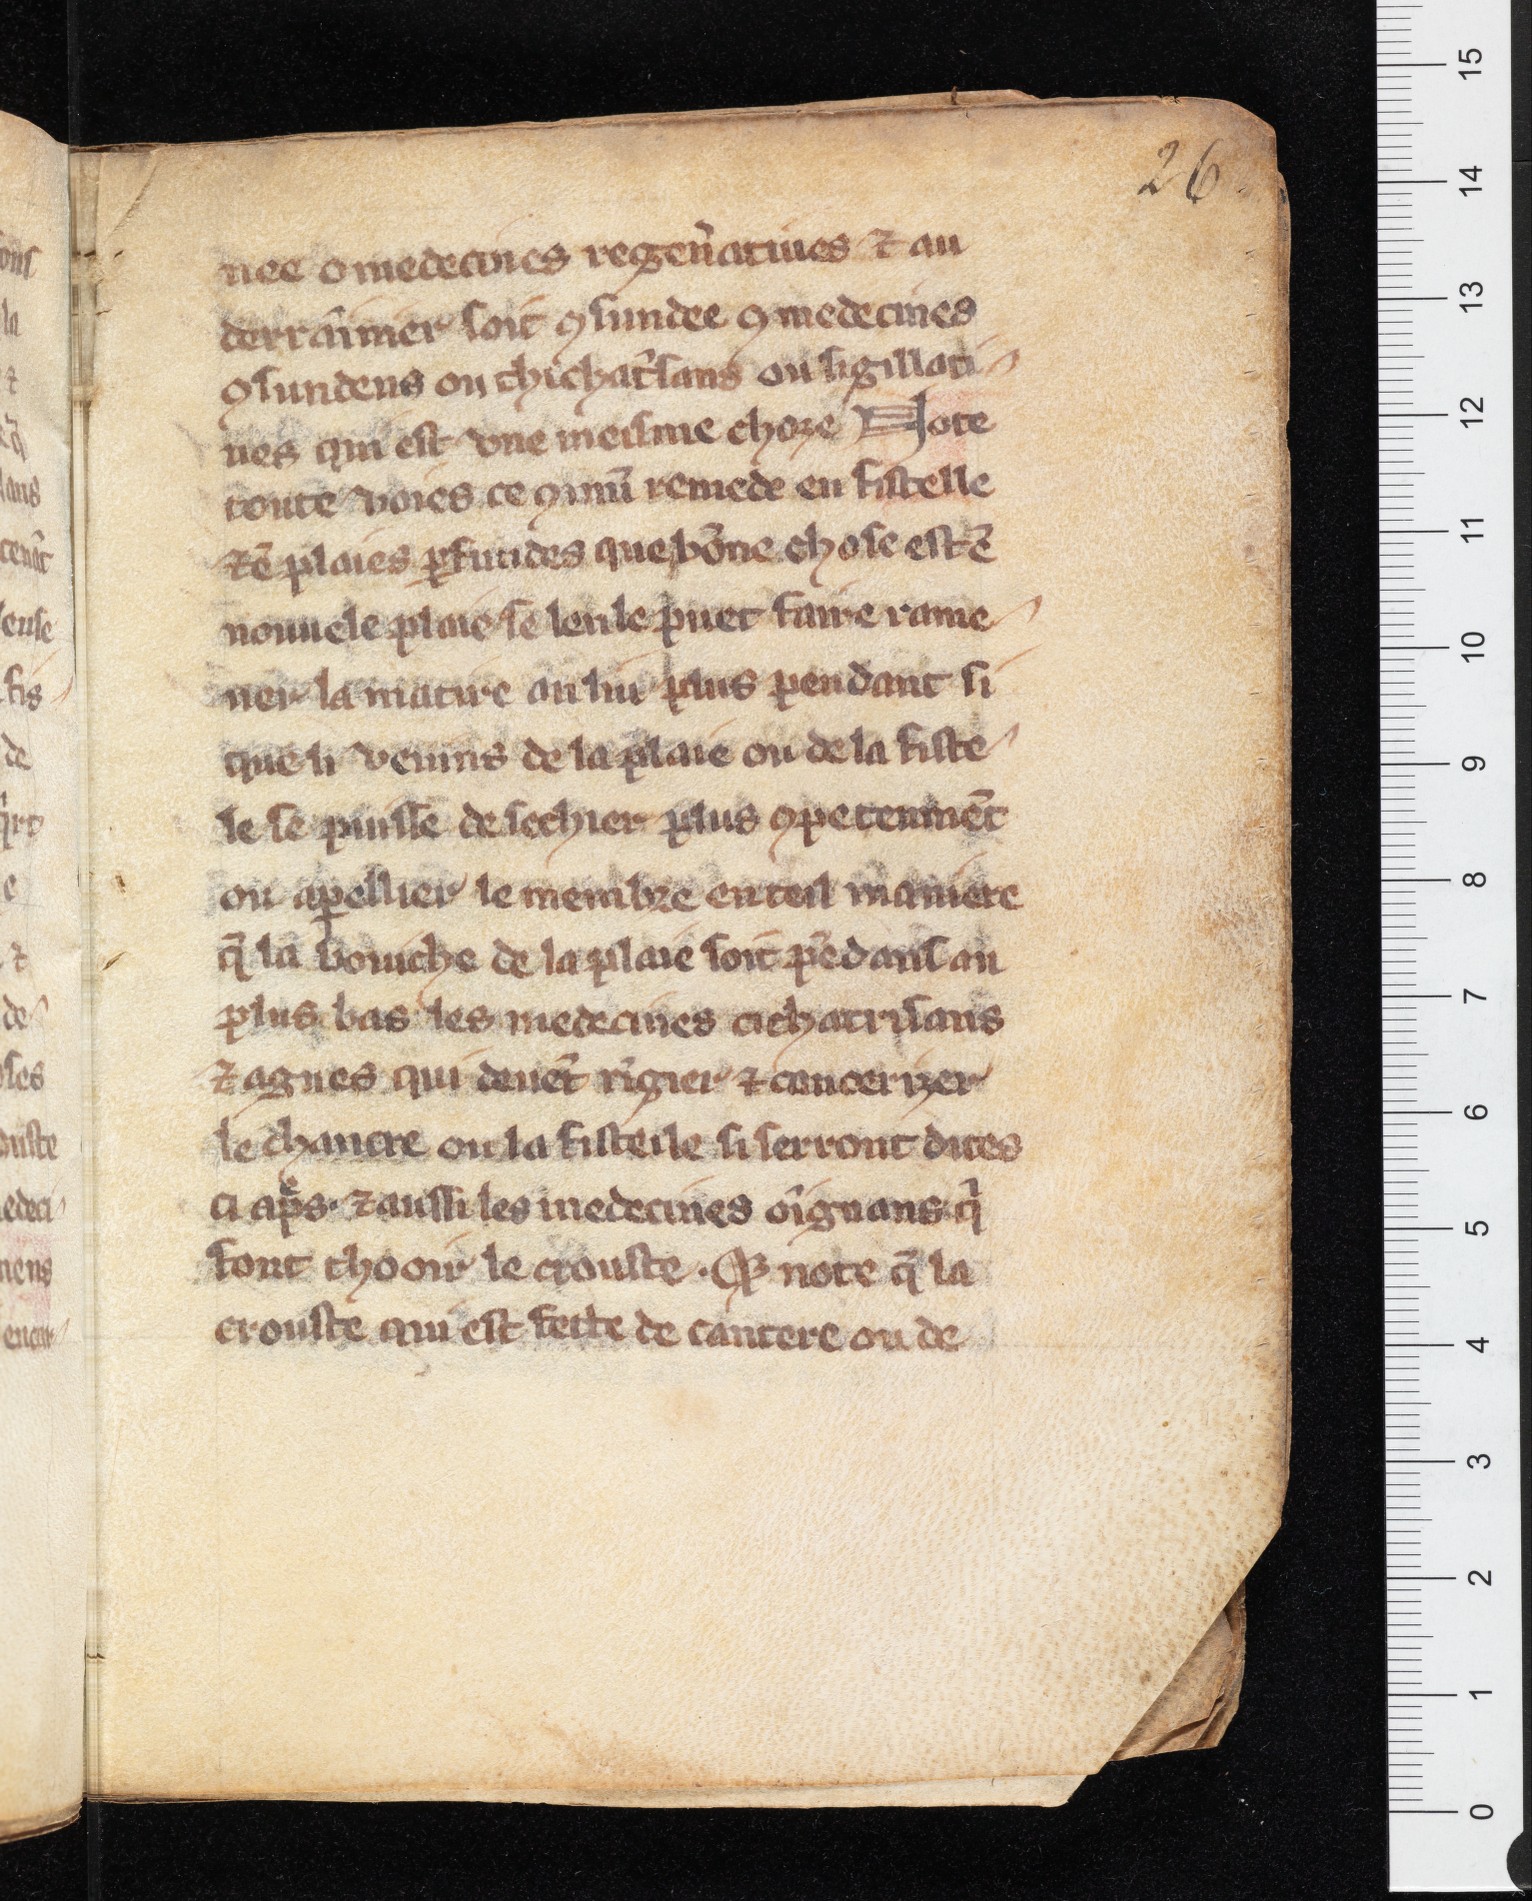 26
nee o medecines regen̄atiues ⁊ au
derrāinier soit ꝯsundee ꝯ medecines
ꝯsundens ou chichat̄sans ou sigillati
ues qui est vne meisme choze Note
toute voies ce ꝯmū remede en fistelle
⁊ ē plaies ꝑfundes que bōne chose est ē
nouuele plaie se len le puet faire rame
ner la matire au lui plus pendant si
que li venins de la plaie ou de la fiste
le se puisse de sechier plus ꝯpetenmēt
ou apellier le membre en teil maniere
q̄ la bouche de la plaie soit pēdans au
plus bas les medecines cichatrisans
⁊ agues qui deuēt rīgier ⁊ cancerizer
le chancre ou la fisteile si serront dites
ci apͤs. ⁊ aussi les medecines oīgnans q̄
font chooir le crouste. ⁊ note q̄ la
crouste qui est feite de cantere ou de
ons
la
⁊
lans
tenāt
leuse
fis
de
e
⁊
de
oles
ouste
edeci
nens